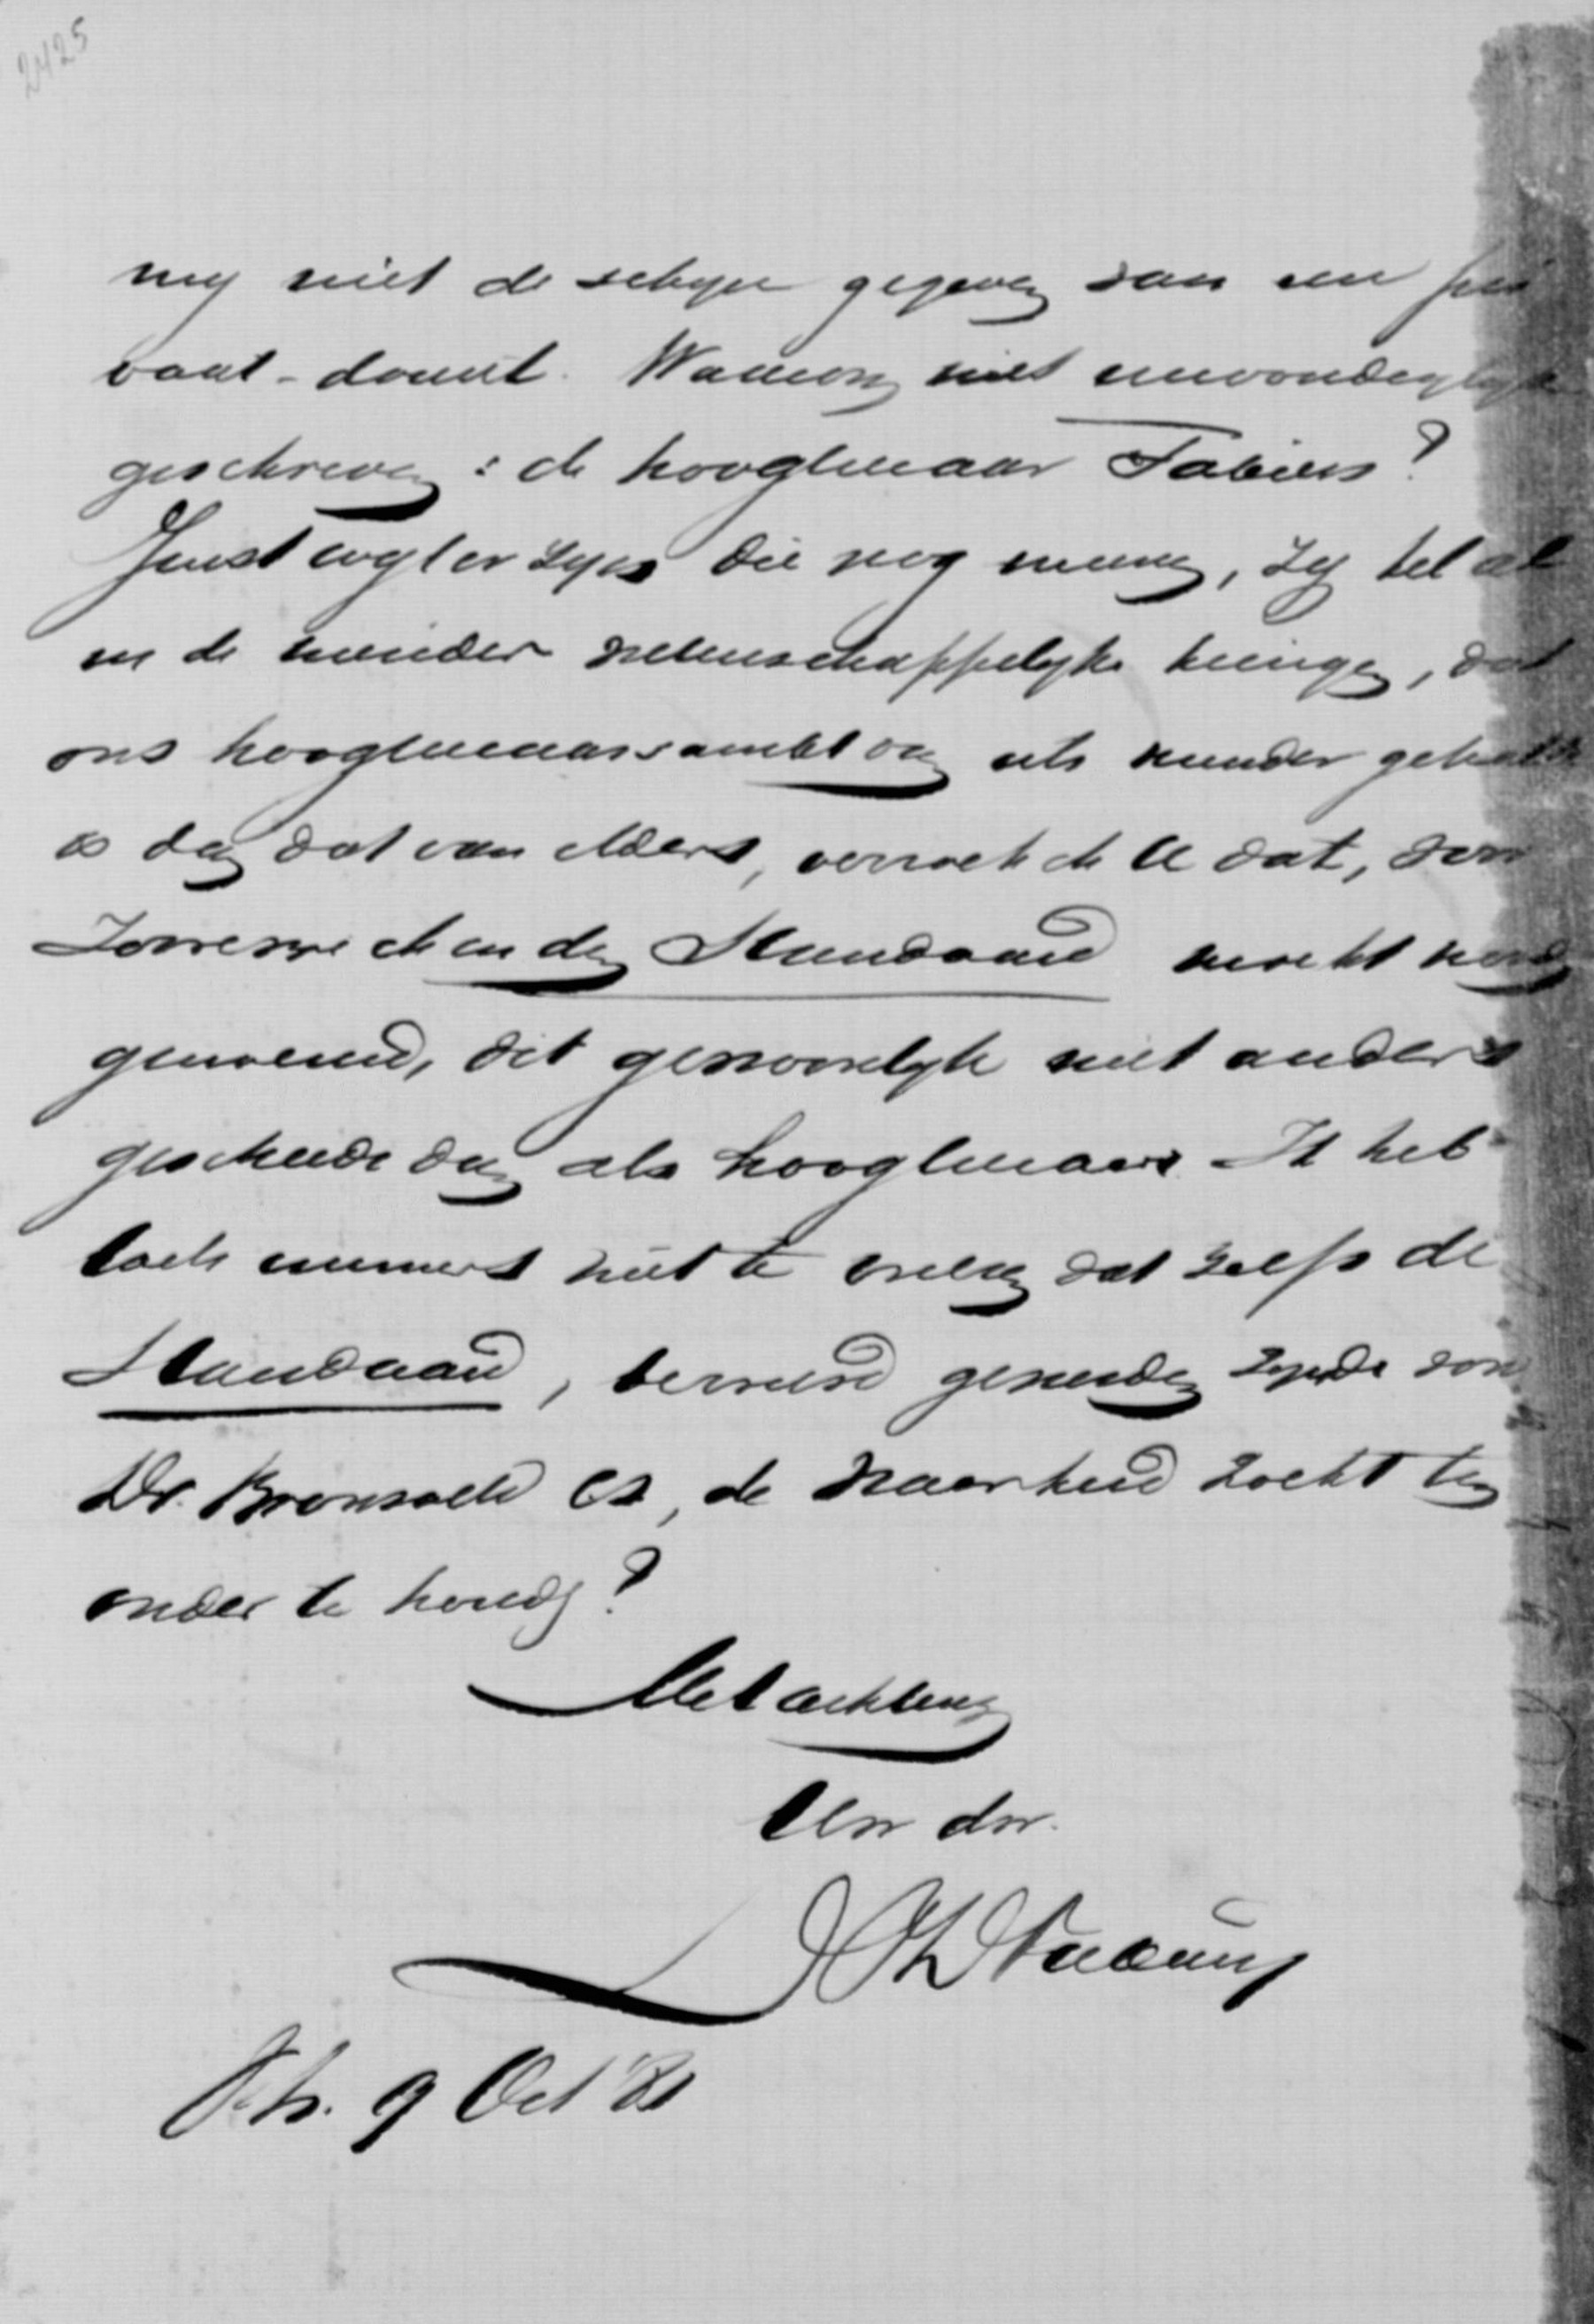 2425
my niet de schyn gegeven van een pri
vaat-docent. Waarom niet eenvoudiglyk
geschreven: de hoogleeraar Fabius?
Juist wyl er zyn die nog meenen, zy het al
in de minder wetenschappelyke kringen, dat
ons hoogleeraarsambt van iets minder gehalte
is dan dat van elders, verzoek ik U dat, zoo
ik in den Standaard mocht worden
genoemd, dit gewoonlyk niet anders
geschiede dan als hoogleeraar. Ik heb
toch immers niet te vreezen dat zelfs de
Standaard, bevreesd geworden zynde voor
Dr. Bronsveld cs, de waarheid zocht ten
onder te houden?
Met achting
Uw dw.
9 Oct '81